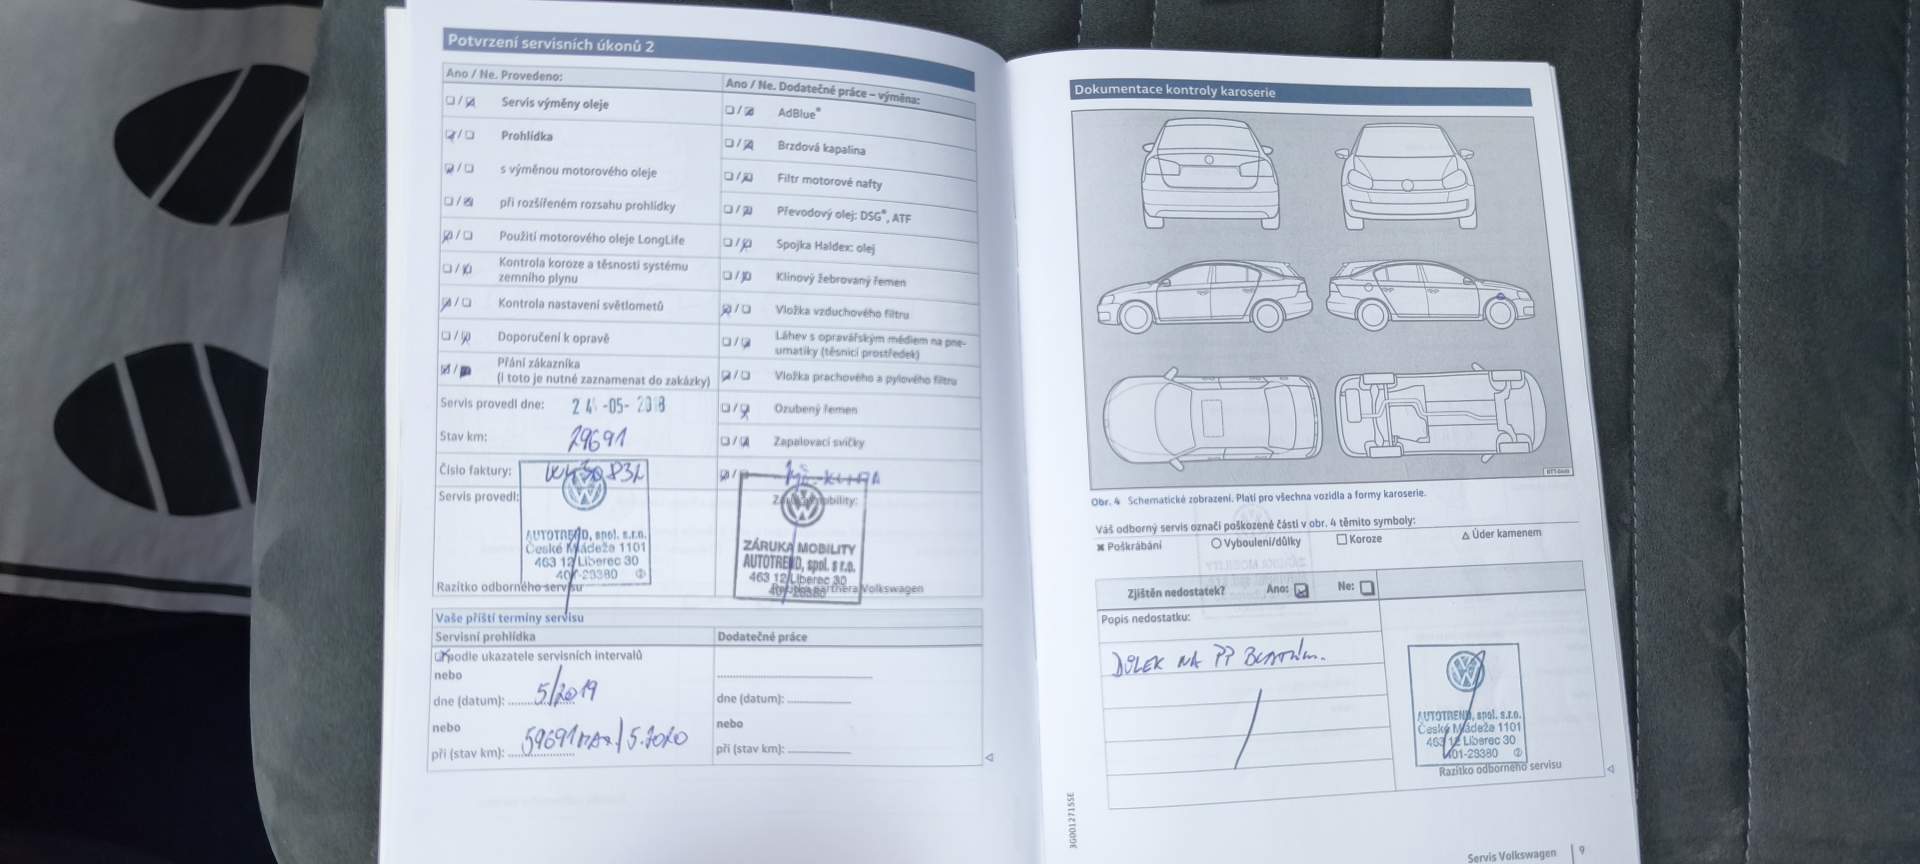 Potvrzení servisních úkonů 2
Ano / Ne. Provedeno:
Servis výměny oleje
Prohlídka
s výměnou motorového oleje
při rozšířeném rozsahu prohlídky
Použití motorového oleje LongLife
Kontrola koroze a těsnosti systému
zemního plynu
Kontrola nastavení světlometů
Doporučení k opravě
Přání zákazníka
(i toto je nutné zaznamenat do zakázky)
Servis provedl dne: 24 -05- 2018
Stav km: 29691
Číslo faktury:
Servis provedl:
AUTOTREND, spol. s.r.o.
České Mládeže 1101
463 12 Liberec 30
401-23380 ②
Razítko odborného servisu
Ano / Ne. Dodatečné práce – výměna:
AdBlue®
Brzdová kapalina
Filtr motorové nafty
Převodový olej: DSG®, ATF
Spojka Haldex: olej
Klínový žebrovaný řemen
Vložka vzduchového filtru
Láhev s opravářským médiem na pne-
umatiky (těsnicí prostředek)
Vložka prachového a pylového filtru
Ozubený řemen
Zapalovací svíčky
ZÁRUKA MOBILITY
AUTOTREND, spol. s r.o.
463 12 Liberec 30
401-23380
partnera Volkswagen
Vaše příští termíny servisu
Servisní prohlídka
podle ukazatele servisních intervalů
nebo
dne (datum): 5/2019
nebo
při (stav km): 59691 MAX. / 5.2020
Dodatečné práce
dne (datum):
nebo
při (stav km):
Dokumentace kontroly karoserie
Obr. 4 Schematické zobrazení. Platí pro všechna vozidla a formy karoserie.
Váš odborný servis označí poškozené části v obr. 4 těmito symboly:
✖ Poškrábání ○ Vyboulení/důlky □ Koroze △ Úder kamenem
Zjištěn nedostatek? Ano: Ne:
Popis nedostatku:
DŮLEK NA PP BLATNÍK.
AUTOTREND, spol. s.r.o.
České Mládeže 1101
463 12 Liberec 30
401-23380 ②
Razítko odborného servisu
3G0012715SE
Servis Volkswagen 9